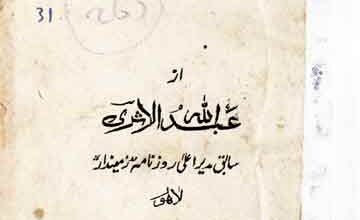 31
از
عبد اللہ الاثری
سابق مدیر اعلیٰ روزنامہ "زمیندار"
لاہور